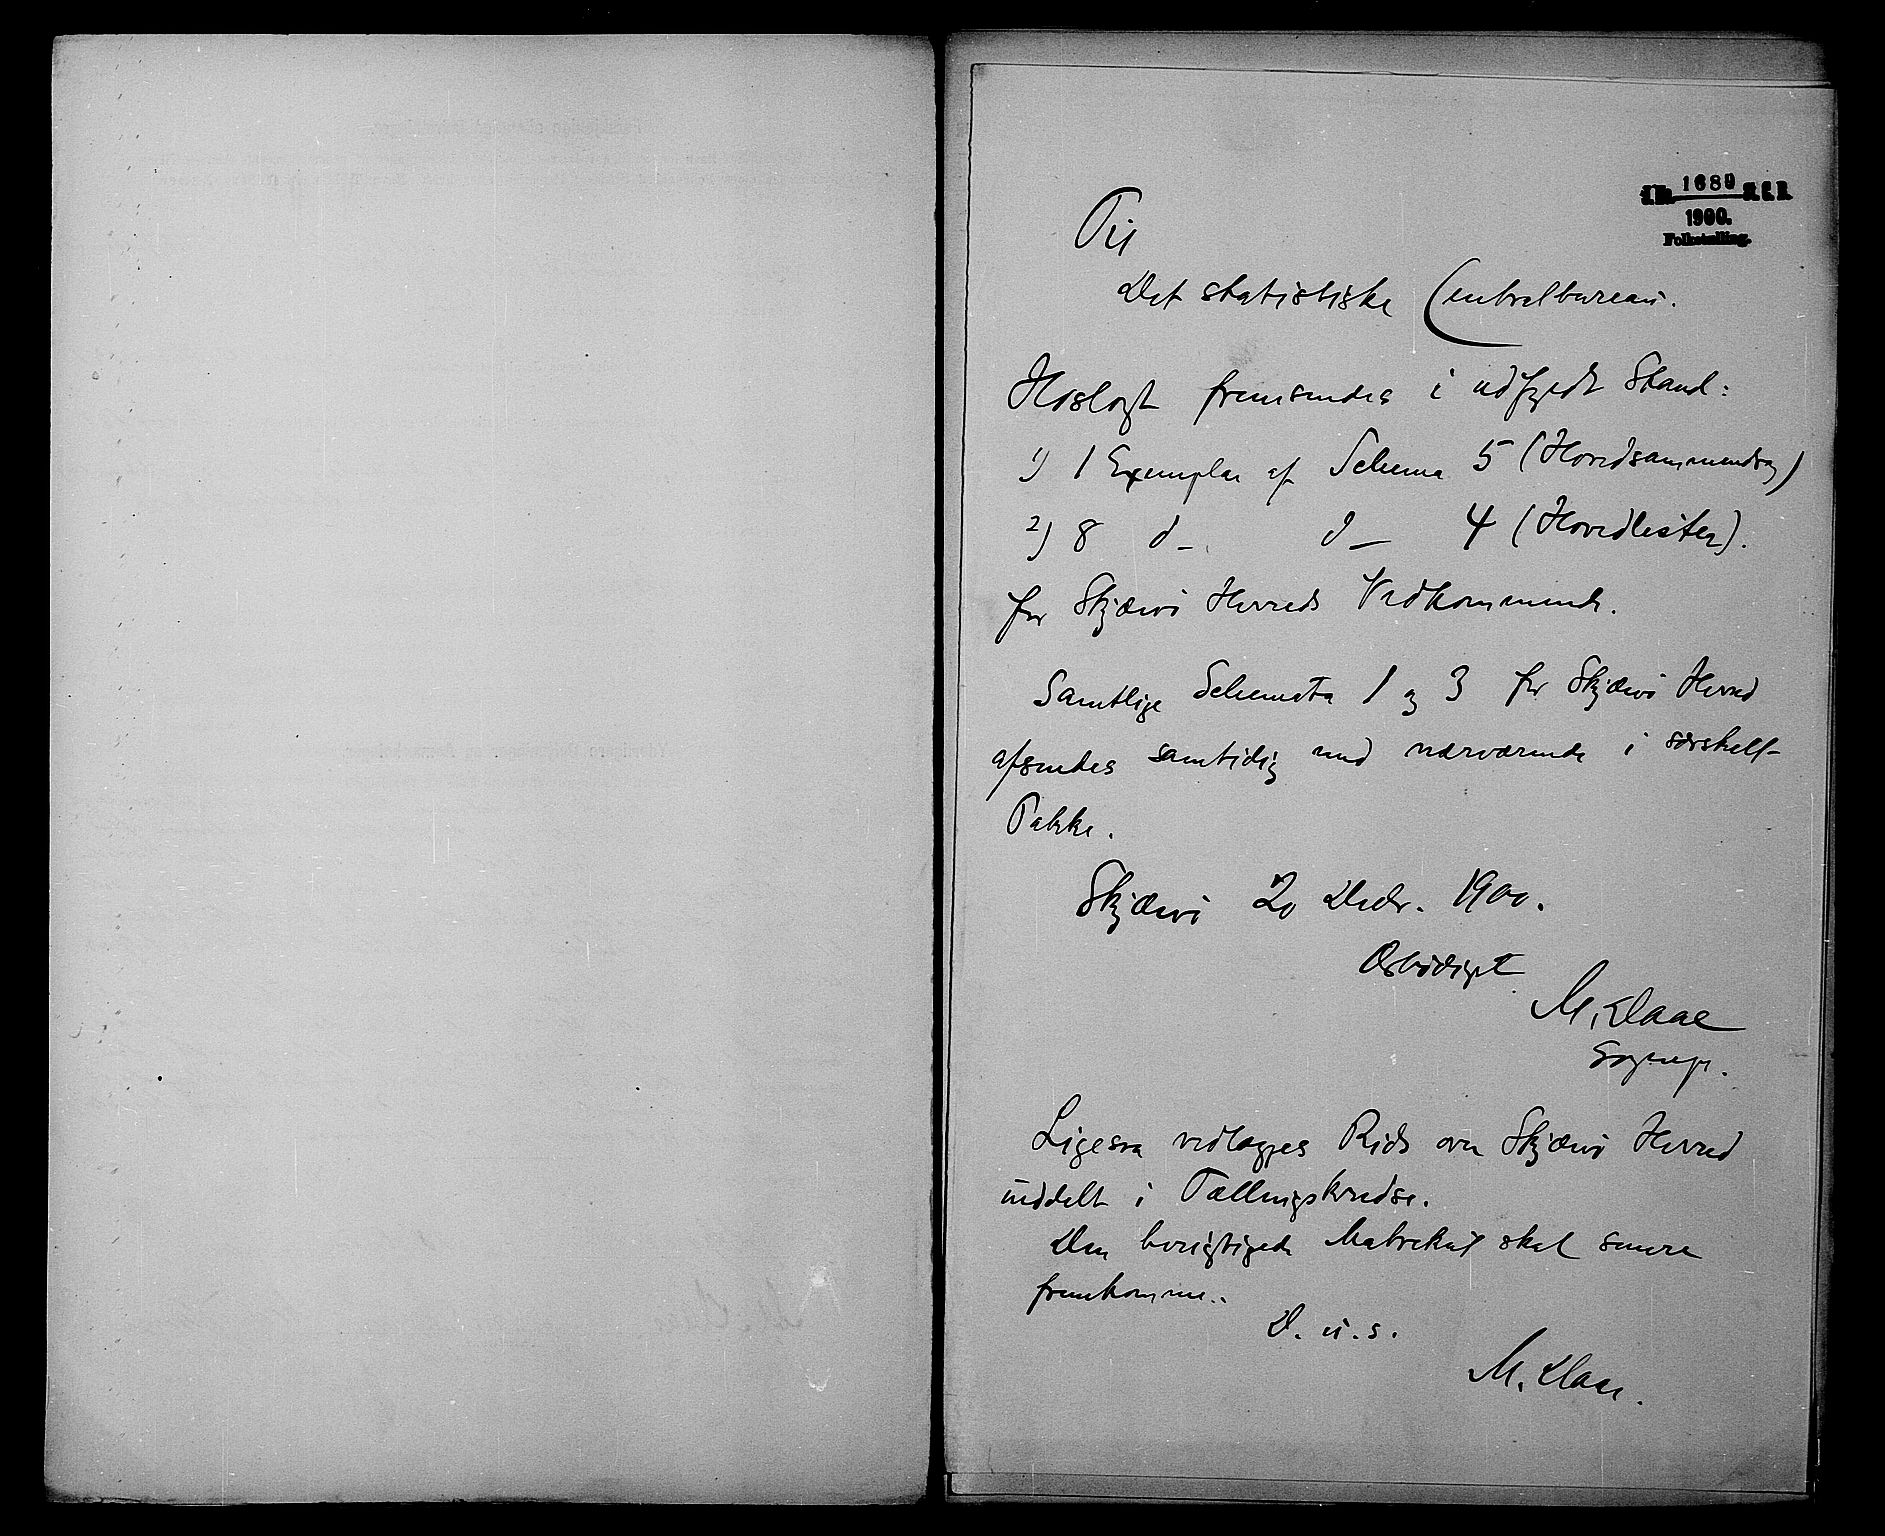 J.No. 1689 S.C.B.
1900.
Folketælling.
Til
Det statistiske Centralbureau.
Hoslagt fremsendes i udfyldt Stand:
1) 1 Exemplar af Schema 5 (Hovedsammendrag)
2) 8 d_ d_ 4 (Hovedlister).
for Skjærvø Herreds Vedkommende.
Samtlige Schemata 1 og 3 for Skjærvø Herred
afsendes samtidig med nærværende i særskelt
Pakke.
Skjærvø 20 Decbr. 1900.
Ærbødigst
M. Daae
Sognepr.
Ligesaa vedlægges Rids over Skjærvø Herred
inddelt i Tællingskredse.
Den berigtigede Matrikul skal senere
fremkomme.
D. u. s.
M. Daae.